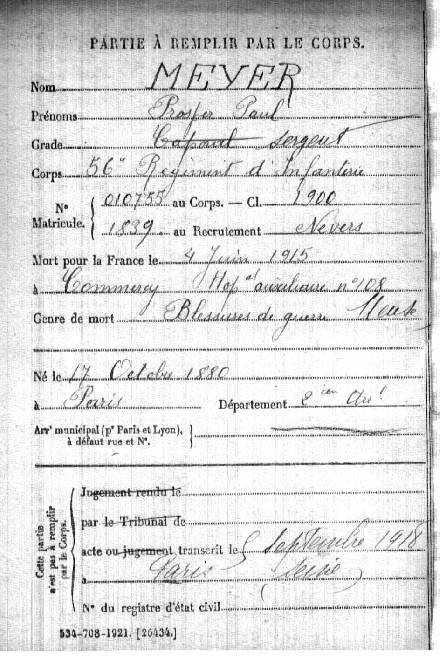 PARTIE À REMPLIR PAR LE CORPS.
Nom MEYER
Prénoms Prosper Paul
Grade Caporal Sergent
Corps 56e Régiment d'Infanterie
N° Matricule. { 010755 au Corps. — Cl. 1900
1839 au Recrutement Nevers
Mort pour la France le 4 Juin 1915
à Commercy Hopal auxiliaire n° 108
Genre de mort Blessures de guerre Meuse
Né le 17 Octobre 1880
à Paris Département 2ieme Arrt
Arrt municipal (pr Paris et Lyon), à défaut rue et N°. }
Cette partie n'est pas à remplir par le Corps.
Jugement rendu le
par le Tribunal de
acte ou jugement transcrit le Septembre 1918
à Paris (Seine)
N° du registre d'état civil
534-708-1921. [26434.]